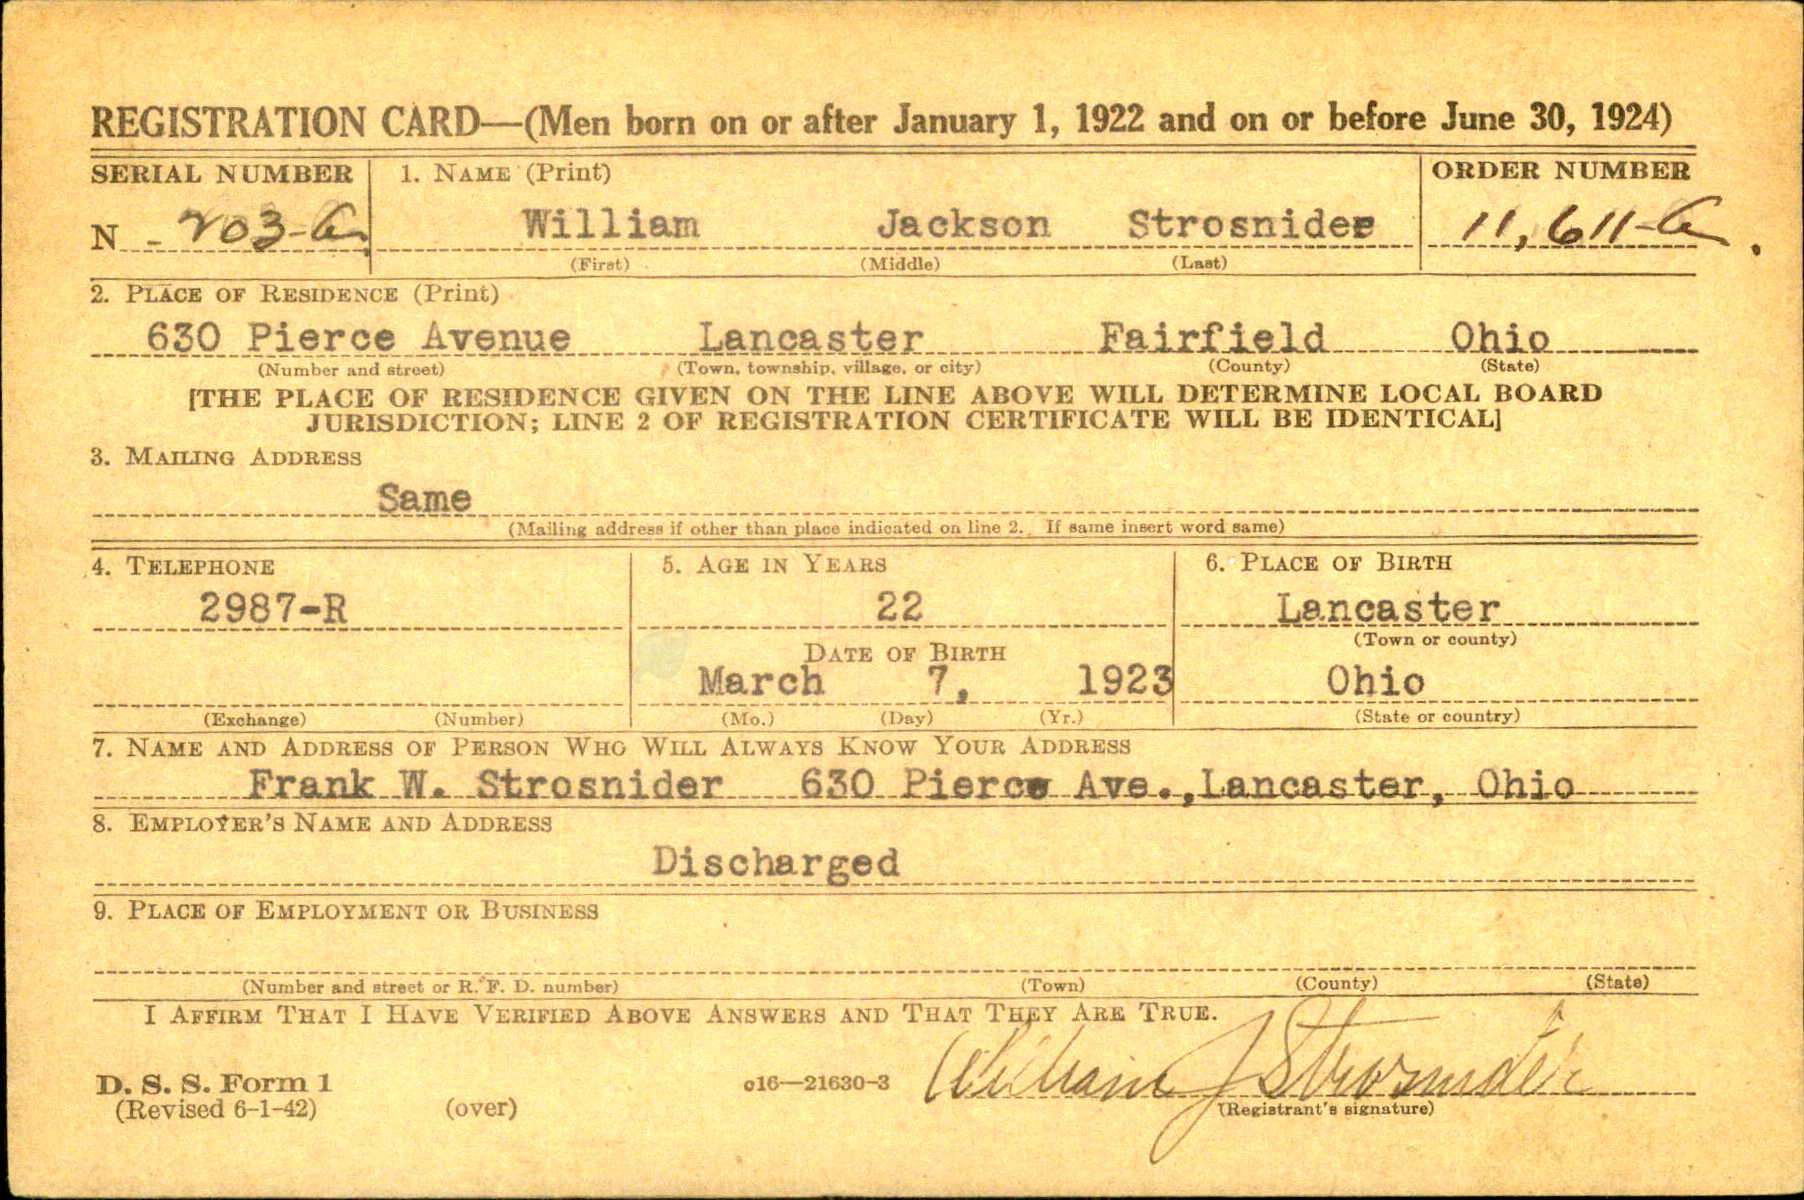 REGISTRATION CARD—(Men born on or after January 1, 1922 and on or before June 30, 1924)
SERIAL NUMBER 1. NAME (Print) ORDER NUMBER
N - 203-A William Jackson Strosnider 11,611-A
(First) (Middle) (Last)
2. PLACE OF RESIDENCE (Print)
630 Pierce Avenue Lancaster Fairfield Ohio
(Number and street) (Town, township, village, or city) (County) (State)
[THE PLACE OF RESIDENCE GIVEN ON THE LINE ABOVE WILL DETERMINE LOCAL BOARD
JURISDICTION; LINE 2 OF REGISTRATION CERTIFICATE WILL BE IDENTICAL]
3. MAILING ADDRESS
Same
(Mailing address if other than place indicated on line 2. If same insert word same)
4. TELEPHONE 5. AGE IN YEARS 6. PLACE OF BIRTH
2987-R 22 Lancaster
(Town or county)
DATE OF BIRTH
March 7, 1923 Ohio
(Exchange) (Number) (Mo.) (Day) (Yr.) (State or country)
7. NAME AND ADDRESS OF PERSON WHO WILL ALWAYS KNOW YOUR ADDRESS
Frank W. Strosnider 630 Pierce Ave., Lancaster, Ohio
8. EMPLOYER'S NAME AND ADDRESS
Discharged
9. PLACE OF EMPLOYMENT OR BUSINESS
(Number and street or R. F. D. number) (Town) (County) (State)
I AFFIRM THAT I HAVE VERIFIED ABOVE ANSWERS AND THAT THEY ARE TRUE.
D. S. S. Form 1 c16—21630-3 William J Strosnider
(Revised 6-1-42) (over) (Registrant's signature)